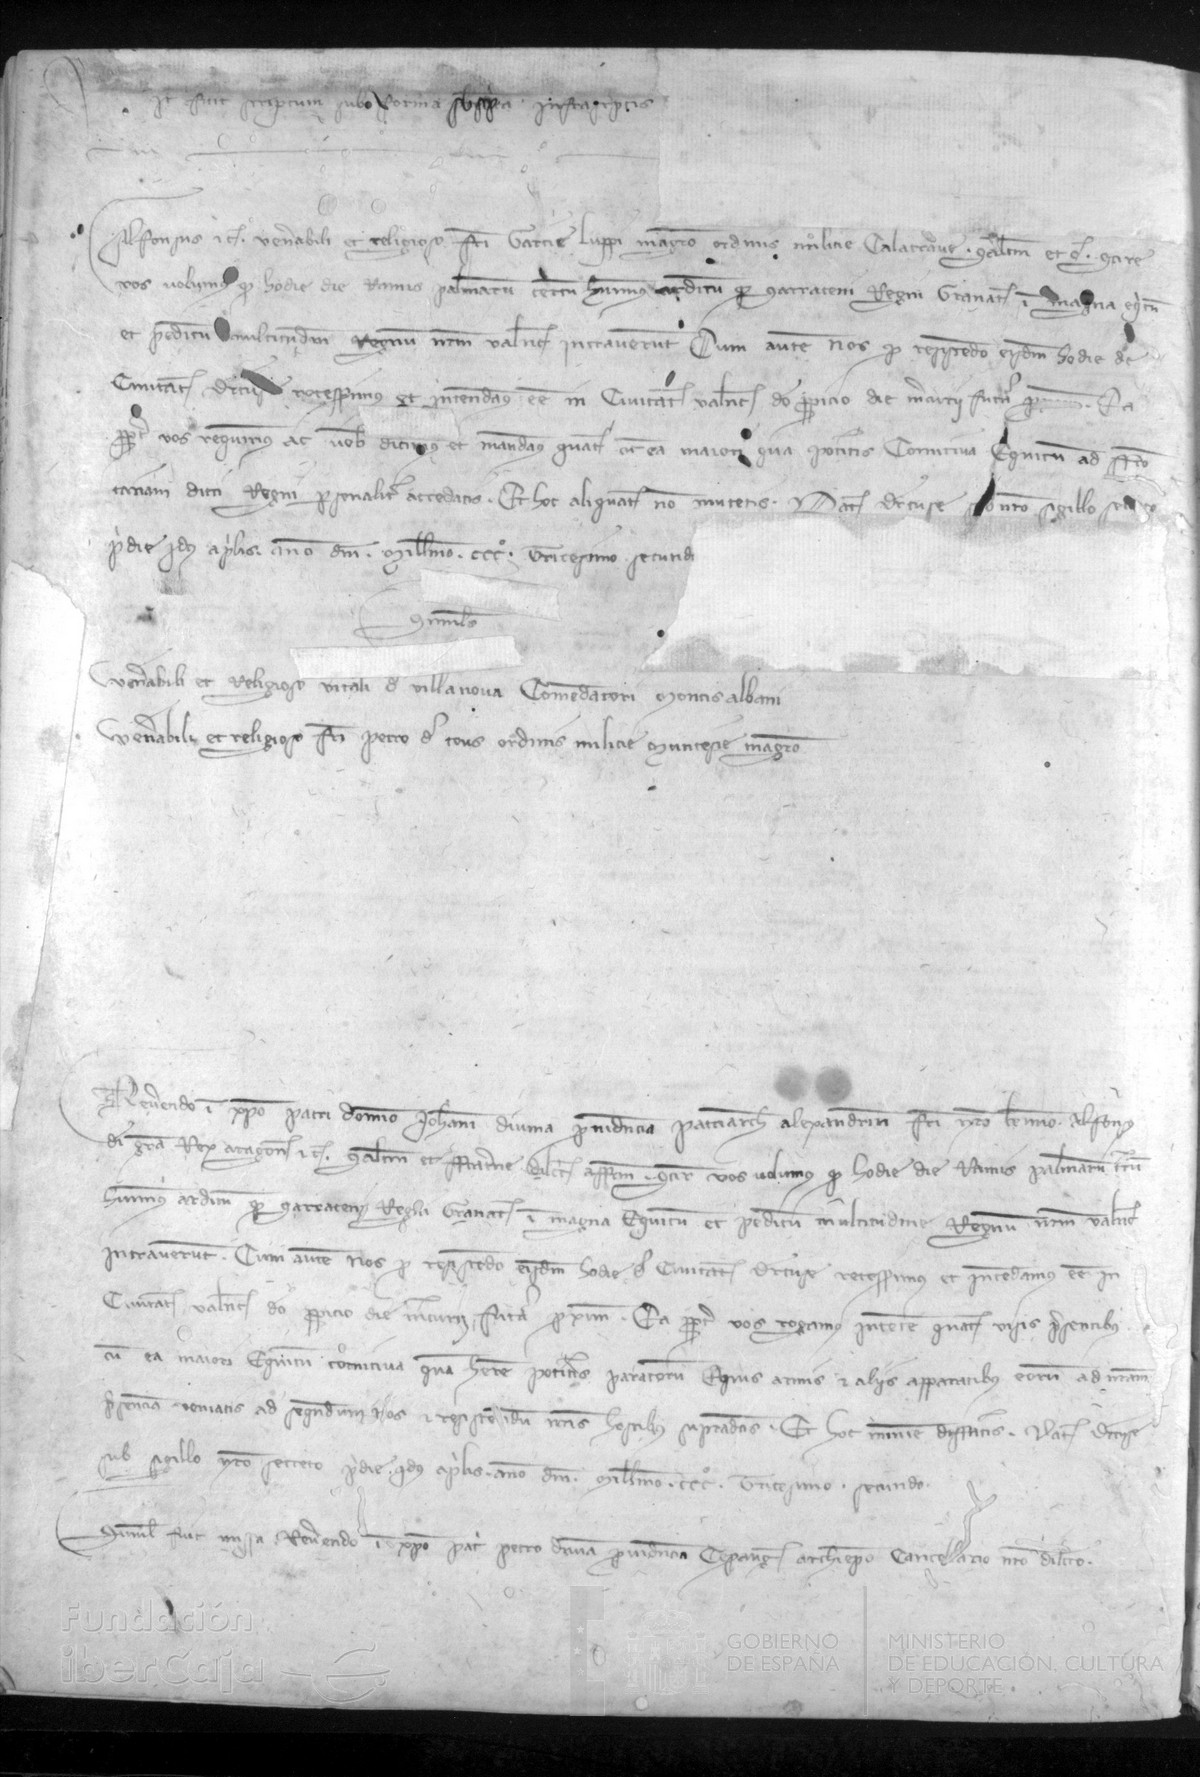 It fuit scriptum sub forma subscripta infrascriptis
Alfonsus etc. venerabili et religioso fratri Garcie Luppi magistro ordinis milicie Calatrave. salutem et dil. Scire
vos volumus quod hodie die Ramis palmarum certum habuimus arditum quod sarraceni Regni Granat in magna equitum
et peditum multitudine Regnum nostrum Valencie intraverunt Cum autem nos pro resistendo eisdem hodie de
Civitate Dertuse recessimus et intendamus esse in Civitate Valencie domino propicio die mercurii futura Ea
propter vos requirimus ac vobis dicimus et mandamus quatenus cum ea maiori qua poteritis Comitiva Equitum ad fron
tariam dicti Regni personaliter accedatis. Et hoc aliquatenus non mutetis. Dat Dertuse nostro sigillo secreto
pridie idus aprilis. anno domini. Millesimo. CCC. Tricesimo secund
Similis
Venerabili et Religioso vitali de villanova Comendatori Montisalbani
Venerabili et religioso fratri petro de tous ordinis milicie Muntesie magistro
Reverendo in xpo patri domino Johanni divina providencia patriarche alexandrin fratri nostro carissimo. Alfonsus
dei gracia Rex aragonum etc. salutem et fraterne dileccionis affectum. Scire vos volumus quod hodie die Ramis palmarum certum
habuimus arditum quod sarraceni Regni Granat in magna Equitum et peditum multitudine Regnum nostrum Valencie
intraverunt. Cum autem Nos pro resistendo eisdem hodie de Civitate Dertuse recessimus et intendamus esse in
Civitate Valencie domino propicio die mercurii futura proxima. Ea propter vos rogamus intente quatenus visis presentibus
cum ea maiori Equitum comitiva quam habere poteritis paratorum Equis armis et aliis apparatibus eorum ad nostram
presenciam veniatis ad sequendum nos et resistendum nostris hostibus supradictis. Et hoc minime differatis. Dat Dertuse
sub sigillo nostro secreto pridie. idus aprilis. anno domini. Millesimo. CCC. Tricesimo. secundo.
Similis fuit missa Reverendo in xpo patri petro divina providencia Cesaraug archiepiscopo Cancellario nostro dilecto.
Fundación
iberCaja
GOBIERNO
DE ESPAÑA
MINISTERIO
DE EDUCACIÓN, CULTURA
Y DEPORTE